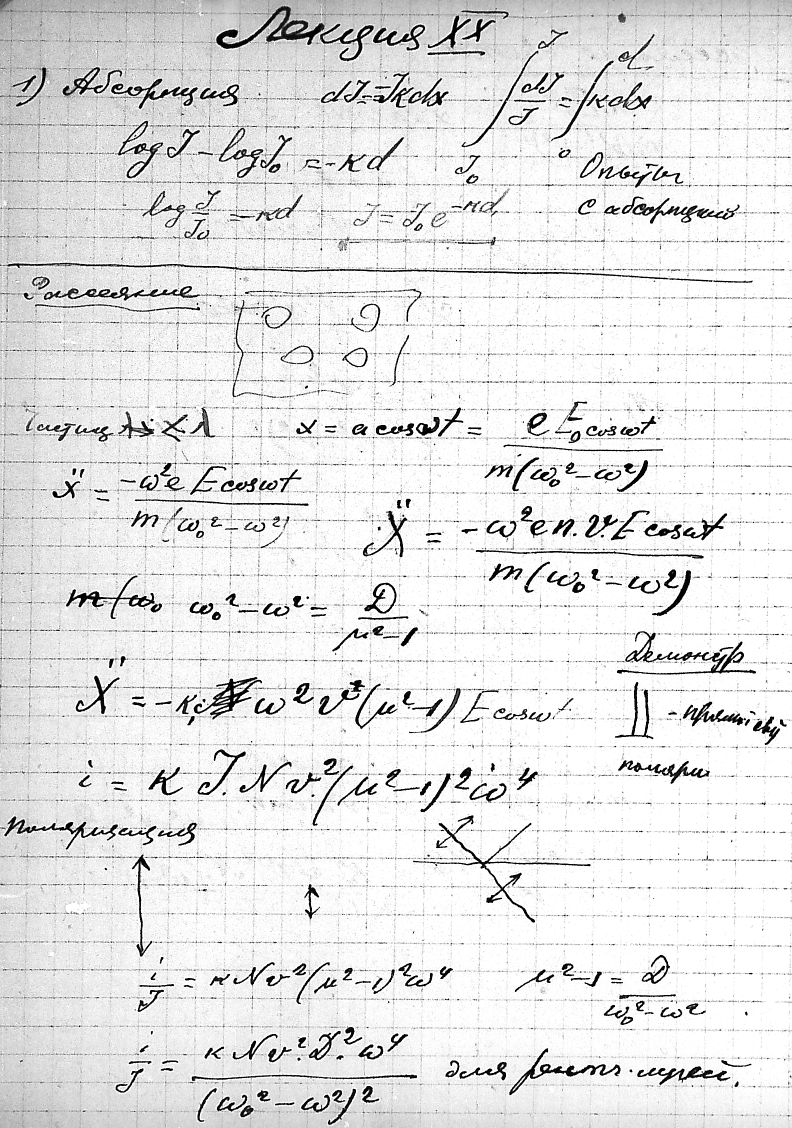 Лекция XX
1) Абсорпция dJ=-Jkdx ∫_{J₀}^{J} dJ/J = ∫_0^d kdx
log J - log J₀ = -kd Опыты
log J/J₀ = -kd J = J₀ e^{-kd} с абсорпцией
Рассеяние
Частиц < λ x = a cosωt = eE₀cosωt / m(ω₀²-ω²)
ẍ = -ω²eEcosωt / m(ω₀²-ω²)
Ẍ = -ω²en.v.Ecosωt / m(ω₀²-ω²)
ω₀²-ω² = D / μ²-1
Демонстр
Ẍ = -k ω²v(μ²-1)Ecosωt
- прямой свет
i = k J.Nv.²(μ²-1)²ω⁴
поляри
Поляризация
i/J = kNv²(μ²-1)²ω⁴ μ²-1 = D / ω₀²-ω²
i/J = kNv².D.²ω⁴ / (ω₀²-ω²)² для рентг. лучей.